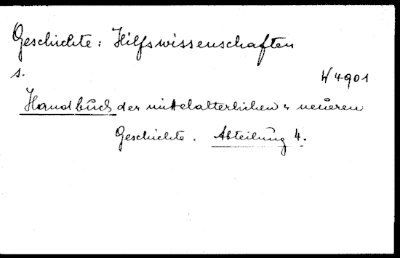 Geschichte: Hilfswissenschaften
s. W 4901
Handbuch der mittelalterlichen u. neueren
Geschichte. Abteilung 4.